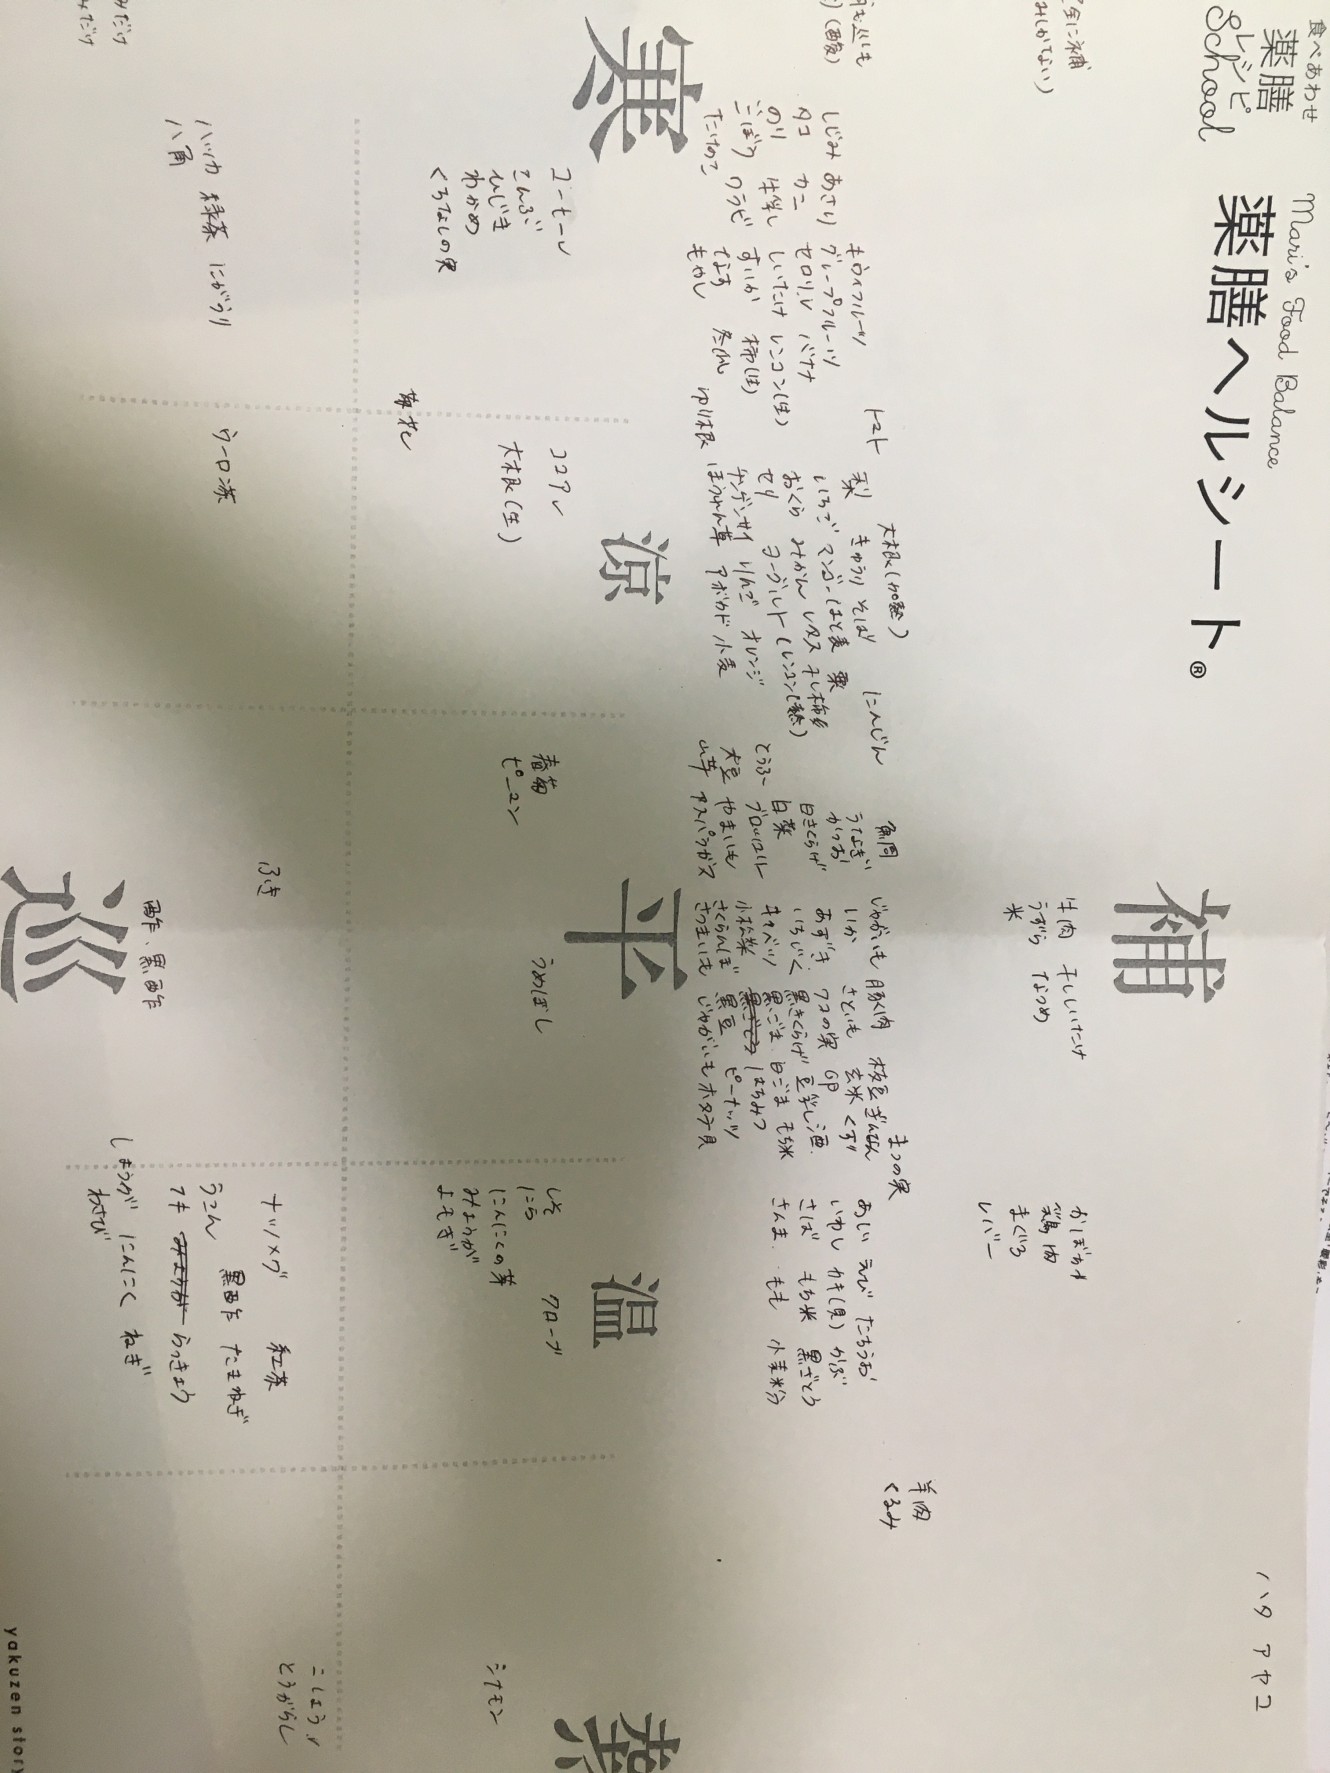 食べあわせ
薬膳
レシピ
School
Mari's Food Balance
薬膳ヘルシート®
ハタ アヤコ
補
牛肉 干ししいたけ
うずら なつめ
米
かぼちゃ
鶏肉
まぐろ
レバー
羊肉
くるみ
寒
しじみ あさり
タコ カニ
のり 牛乳
ごぼう ワラビ
たけのこ
キウイフルーツ
グレープフルーツ
セロリ バナナ
しいたけ レンコン(生)
すいか 柿(生)
なす 冬瓜
もやし
ゆり根
トマト
大根(加熱)
梨 きゅうり そば
いちご マンゴー はと麦
おくら みかん レタス 干し柿
セリ ヨーグルト (レンコン(熱)
チンゲンサイ りんご オレンジ
ほうれん草 アボカド 小麦
にんじん
涼
とうふ
大豆
山芋
うなぎ
かつお
白きくらげ
白菜
ブロッコリー
やまいも
アスパラガス
平
じゃがいも 豚肉 枝豆 ぎんなん
いか さといも 玄米 くず
あずき クコの実 卵
いちじく 黒きくらげ 豆乳 酒
キャベツ 黒ごま 白ごま もち米
小松菜 はちみつ
さくらんぼ 黒豆 ピーナッツ
さつまいも じゃがいも ホタテ貝
まつの実
あじ えび たちうお
いわし カキ(貝) かぶ
さば もち米 黒ざとう
さんま もも 小麦粉
温
熱
コーヒー
こんぶ
ひじき
わかめ
くちなしの実
菊花
ココア
大根(生)
春菊
ピーマン
うめぼし
しそ
にら
にんにくの芽
みょうが
よもぎ
クローブ
シナモン
ハッカ 緑茶 にがうり
八角
ウーロン茶
ふき
酢、黒酢
ナツメグ 紅茶
うこん 黒酢 たまねぎ
フキ みょうが らっきょう
しょうが にんにく ねぎ
わさび
こしょう
とうがらし
巡
yakuzen story